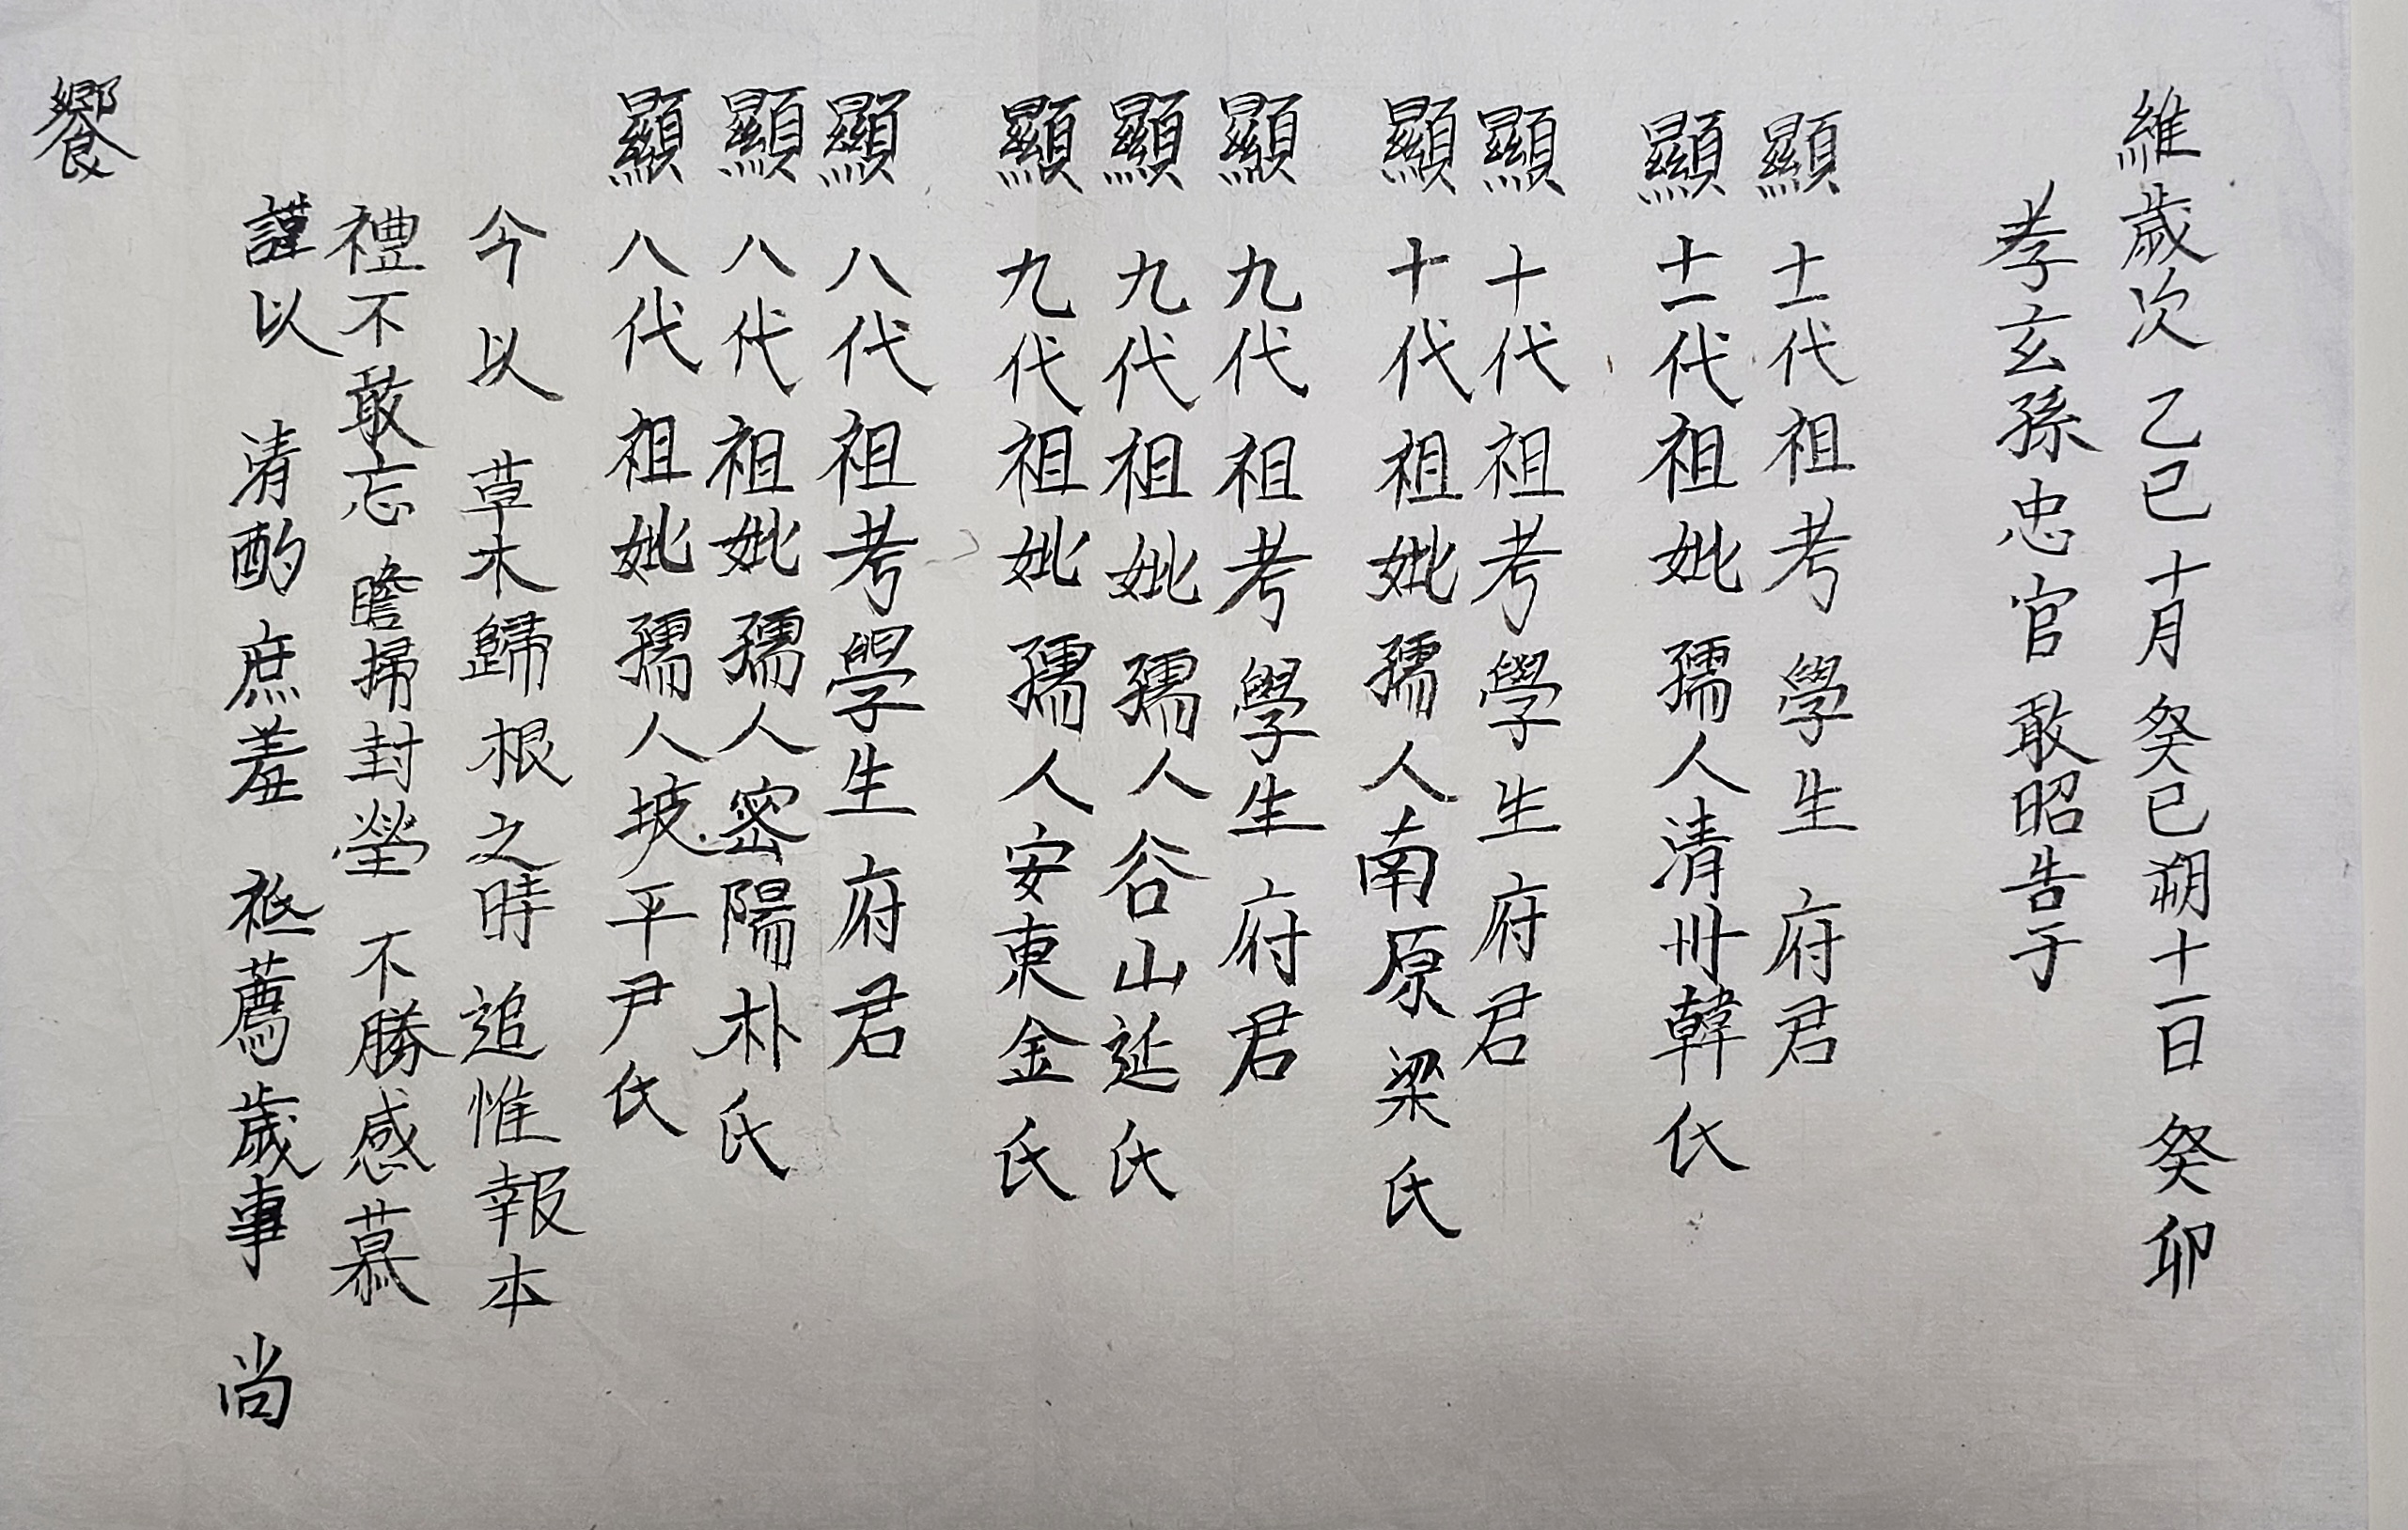 維歲次 乙巳 十月 癸巳朔 十一日 癸卯
孝玄孫 忠官 敢昭告于
顯 十一代祖考 學生 府君
顯 十一代祖妣 孺人清州韓氏
顯 十代祖考學生府君
顯 十代祖妣孺人南原梁氏
顯 九代祖考 學生府君
顯 九代祖妣 孺人 谷山延氏
顯 九代祖妣 孺人安東金氏
顯 八代祖考學生 府君
顯 八代祖妣孺人密陽朴氏
顯 八代祖妣孺人坡平尹氏
今以 草木歸根之時 追惟報本
禮不敢忘 瞻掃封塋 不勝感慕
謹以 淸酌庶羞 祗薦歲事 尚
饗